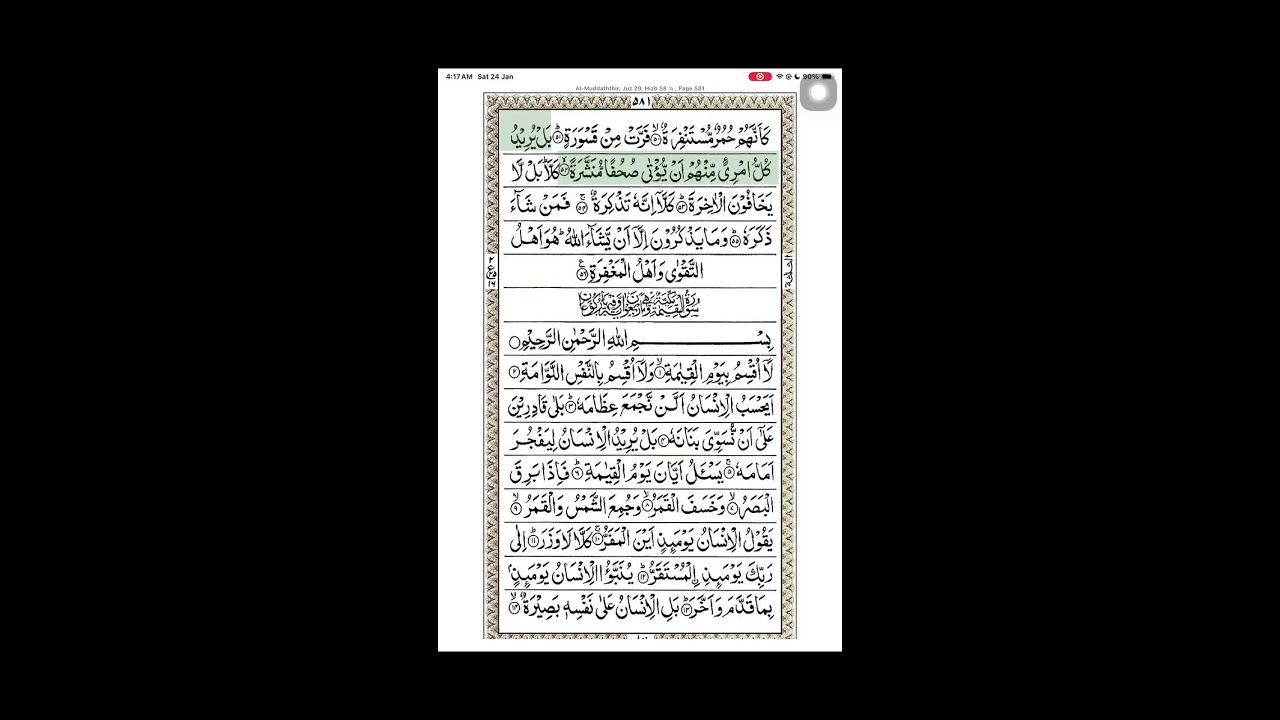 4:17 AM Sat 24 Jan
90%
Al-Muddaththir, Juz 29, Hizb 58 ¼ , Page 581
۵۸۱
كَاَنَّهُمْ حُمُرٌ مُّسْتَنْفِرَةٌ ۙ﴿۵۰﴾ فَرَّتْ مِنْ قَسْوَرَةٍ ؕ﴿۵۱﴾ بَلْ يُرِيْدُ
كُلُّ امْرِئٍ مِّنْهُمْ اَنْ يُّؤْتٰى صُحُفًا مُّنَشَّرَةً ۙ﴿۵۲﴾ كَلَّا ؕ بَلْ لَّا
يَخَافُوْنَ الْاٰخِرَةَ ؕ﴿۵۳﴾ كَلَّاۤ اِنَّهٗ تَذْكِرَةٌ ۚ﴿۵۴﴾ فَمَنْ شَآءَ
ذَكَرَهٗ ؕ﴿۵۵﴾ وَمَا يَذْكُرُوْنَ اِلَّاۤ اَنْ يَّشَآءَ اللّٰهُ ؕ هُوَ اَهْلُ
التَّقْوٰى وَاَهْلُ الْمَغْفِرَةِ ﴿۵۶﴾
بِسْمِ اللّٰهِ الرَّحْمٰنِ الرَّحِيْمِ
لَاۤ اُقْسِمُ بِيَوْمِ الْقِيٰمَةِ ۙ﴿۱﴾ وَلَاۤ اُقْسِمُ بِالنَّفْسِ اللَّوَّامَةِ ؕ﴿۲﴾
اَيَحْسَبُ الْاِنْسَانُ اَلَّنْ نَّجْمَعَ عِظَامَهٗ ؕ﴿۳﴾ بَلٰى قَادِرِيْنَ
عَلٰۤى اَنْ نُّسَوِّىَ بَنَانَهٗ ﴿۴﴾ بَلْ يُرِيْدُ الْاِنْسَانُ لِيَفْجُرَ
اَمَامَهٗ ۚ﴿۵﴾ يَسْـَٔلُ اَيَّانَ يَوْمُ الْقِيٰمَةِ ؕ﴿۶﴾ فَاِذَا بَرِقَ
الْبَصَرُ ۙ﴿۷﴾ وَخَسَفَ الْقَمَرُ ۙ﴿۸﴾ وَجُمِعَ الشَّمْسُ وَالْقَمَرُ ۙ﴿۹﴾
يَقُوْلُ الْاِنْسَانُ يَوْمَئِذٍ اَيْنَ الْمَفَرُّ ۚ﴿۱۰﴾ كَلَّا لَا وَزَرَ ؕ﴿۱۱﴾ اِلٰى
رَبِّكَ يَوْمَئِذِ ِ۟الْمُسْتَقَرُّ ؕ﴿۱۲﴾ يُنَبَّؤُا الْاِنْسَانُ يَوْمَئِذٍۭ
بِمَا قَدَّمَ وَاَخَّرَ ؕ﴿۱۳﴾ بَلِ الْاِنْسَانُ عَلٰى نَفْسِهٖ بَصِيْرَةٌ ۙ﴿۱۴﴾